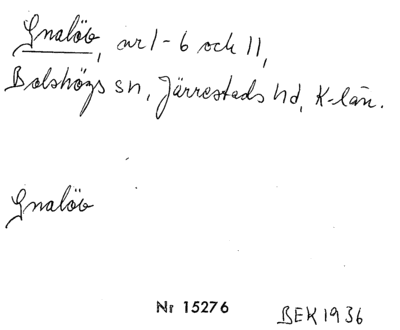 Gnalöv, nr 1-6 och 11,
Bolshögs sn, Järrestads hd, K-län.
Gnalöv
Nr 15276 BEK 1936